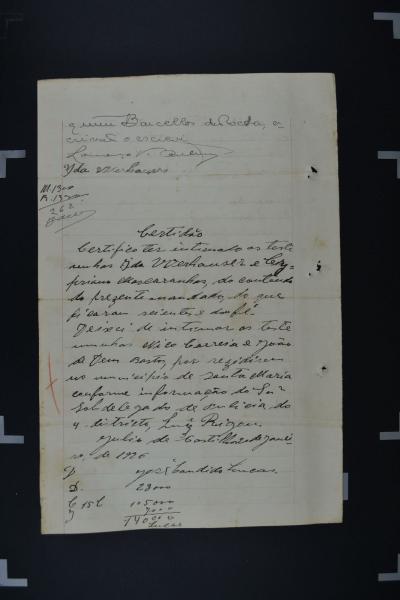 Barcellos da Rocha, es
crivão o escrevi
Yda Werhauser
M. 1300
262
Certidão
Certifico ter intimado as teste
munhas Yda Werhauser e Cey
priano Mascaranhas, do conteudo
do prezente mandado, do que
ficaram scientes e dou fé.
Deixei de intimar as teste
munhas Nico Correia e João
de Deus Bastos, por rezidirem
no municipio de Santa Maria
conforme informação do Snr
Sub delegado de Policia do
4 districto, Luiz
Julio de Castilhos de Janei
ro, de 1926
José Candido Lucas
D. 28000
C 15 L 105000
7000
140000
Lucas